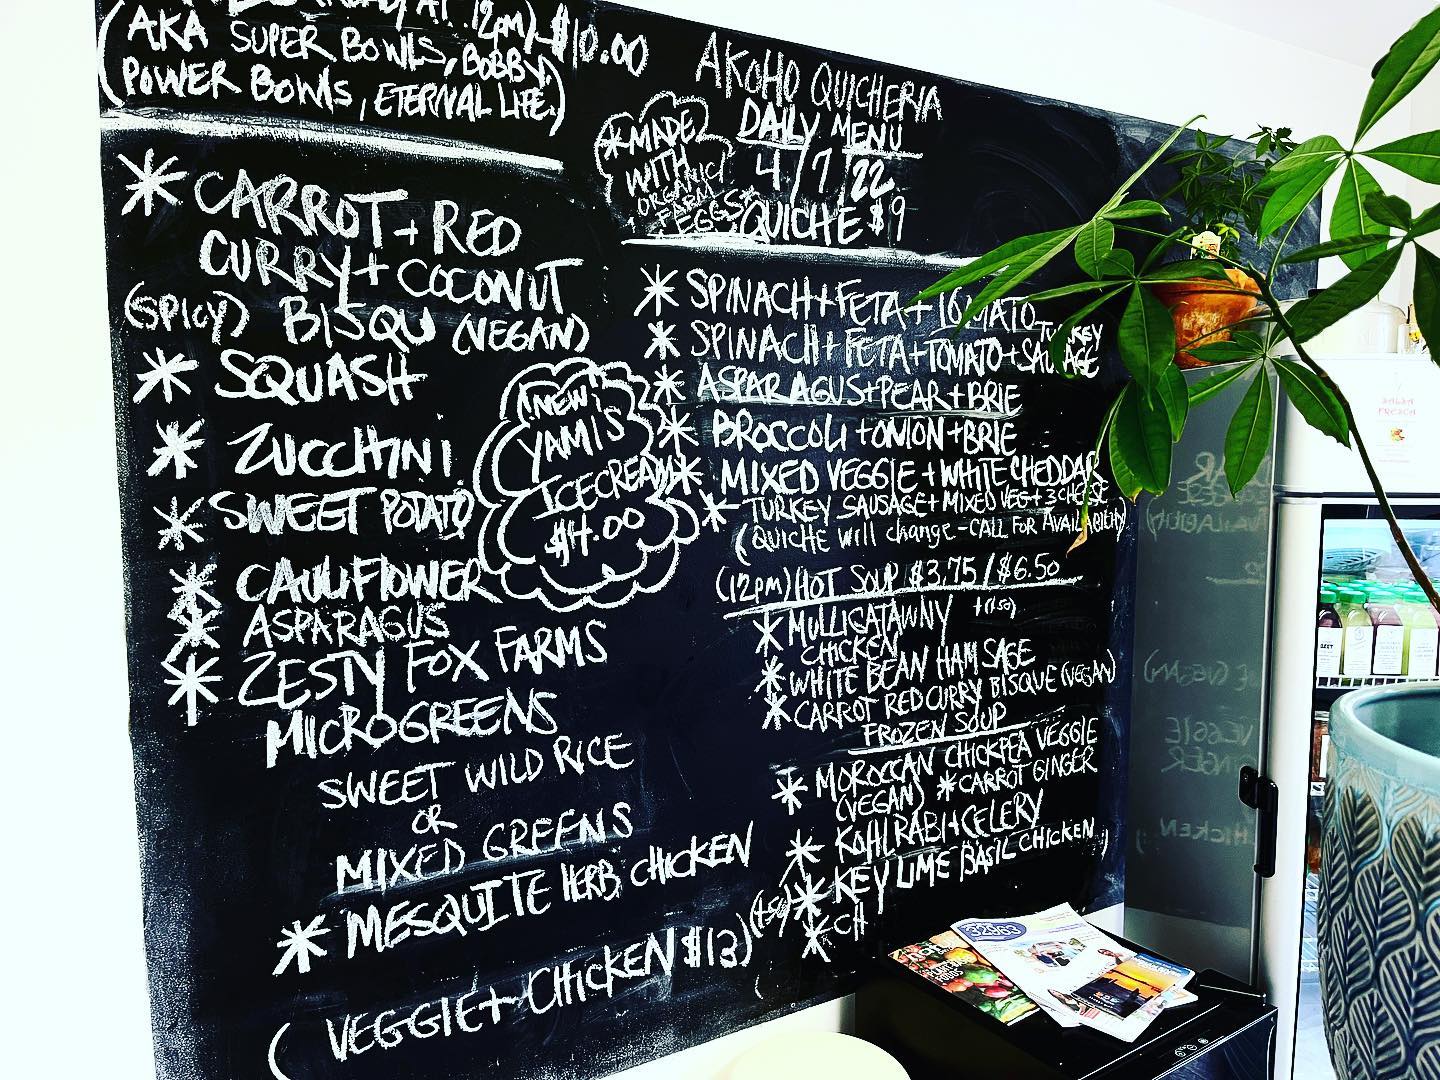 AT 12pm) $10.00
(AKA SUPER BOWLS, BOBBY,
POWER BOWLS, ETERNAL LIFE.)
* CARROT + RED
CURRY + COCONUT
(SPICY) BISQU (VEGAN)
* SQUASH
* ZUCCHINI
* SWEET POTATO
* CAULIFLOWER
* ASPARAGUS
* ZESTY FOX FARMS
MICROGREENS
SWEET WILD RICE
OR
MIXED GREENS
* MESQUITE HERB CHICKEN
(VEGGIE + CHICKEN $13)
NEW!
YAMIS
ICECREAM
$4.00
AKOHO QUICHERIA
DAILY MENU
4/7 22
*MADE
WITH
ORGANIC
FARM
EGGS*
QUICHE $9
* SPINACH + FETA + TOMATO
* SPINACH + FETA + TOMATO + TURKEY SAUSAGE
* ASPARAGUS + PEAR + BRIE
* BROCCOLI + ONION + BRIE
* MIXED VEGGIE + WHITE CHEDDAR
* TURKEY SAUSAGE + MIXED VEG + 3 CHEESE
(QUICHE will change - CALL FOR AVAILABILITY)
(12pm) HOT SOUP $3.75/$6.50
* MULLIGATAWNY +(1.50)
CHICKEN
* WHITE BEAN HAM SAGE
* CARROT RED CURRY BISQUE (VEGAN)
FROZEN SOUP
* MOROCCAN CHICKPEA VEGGIE
(VEGAN) * CARROT GINGER
* KOHLRABI + CELERY
* KEY LIME BASIL CHICKEN
* CH
32963
BEET